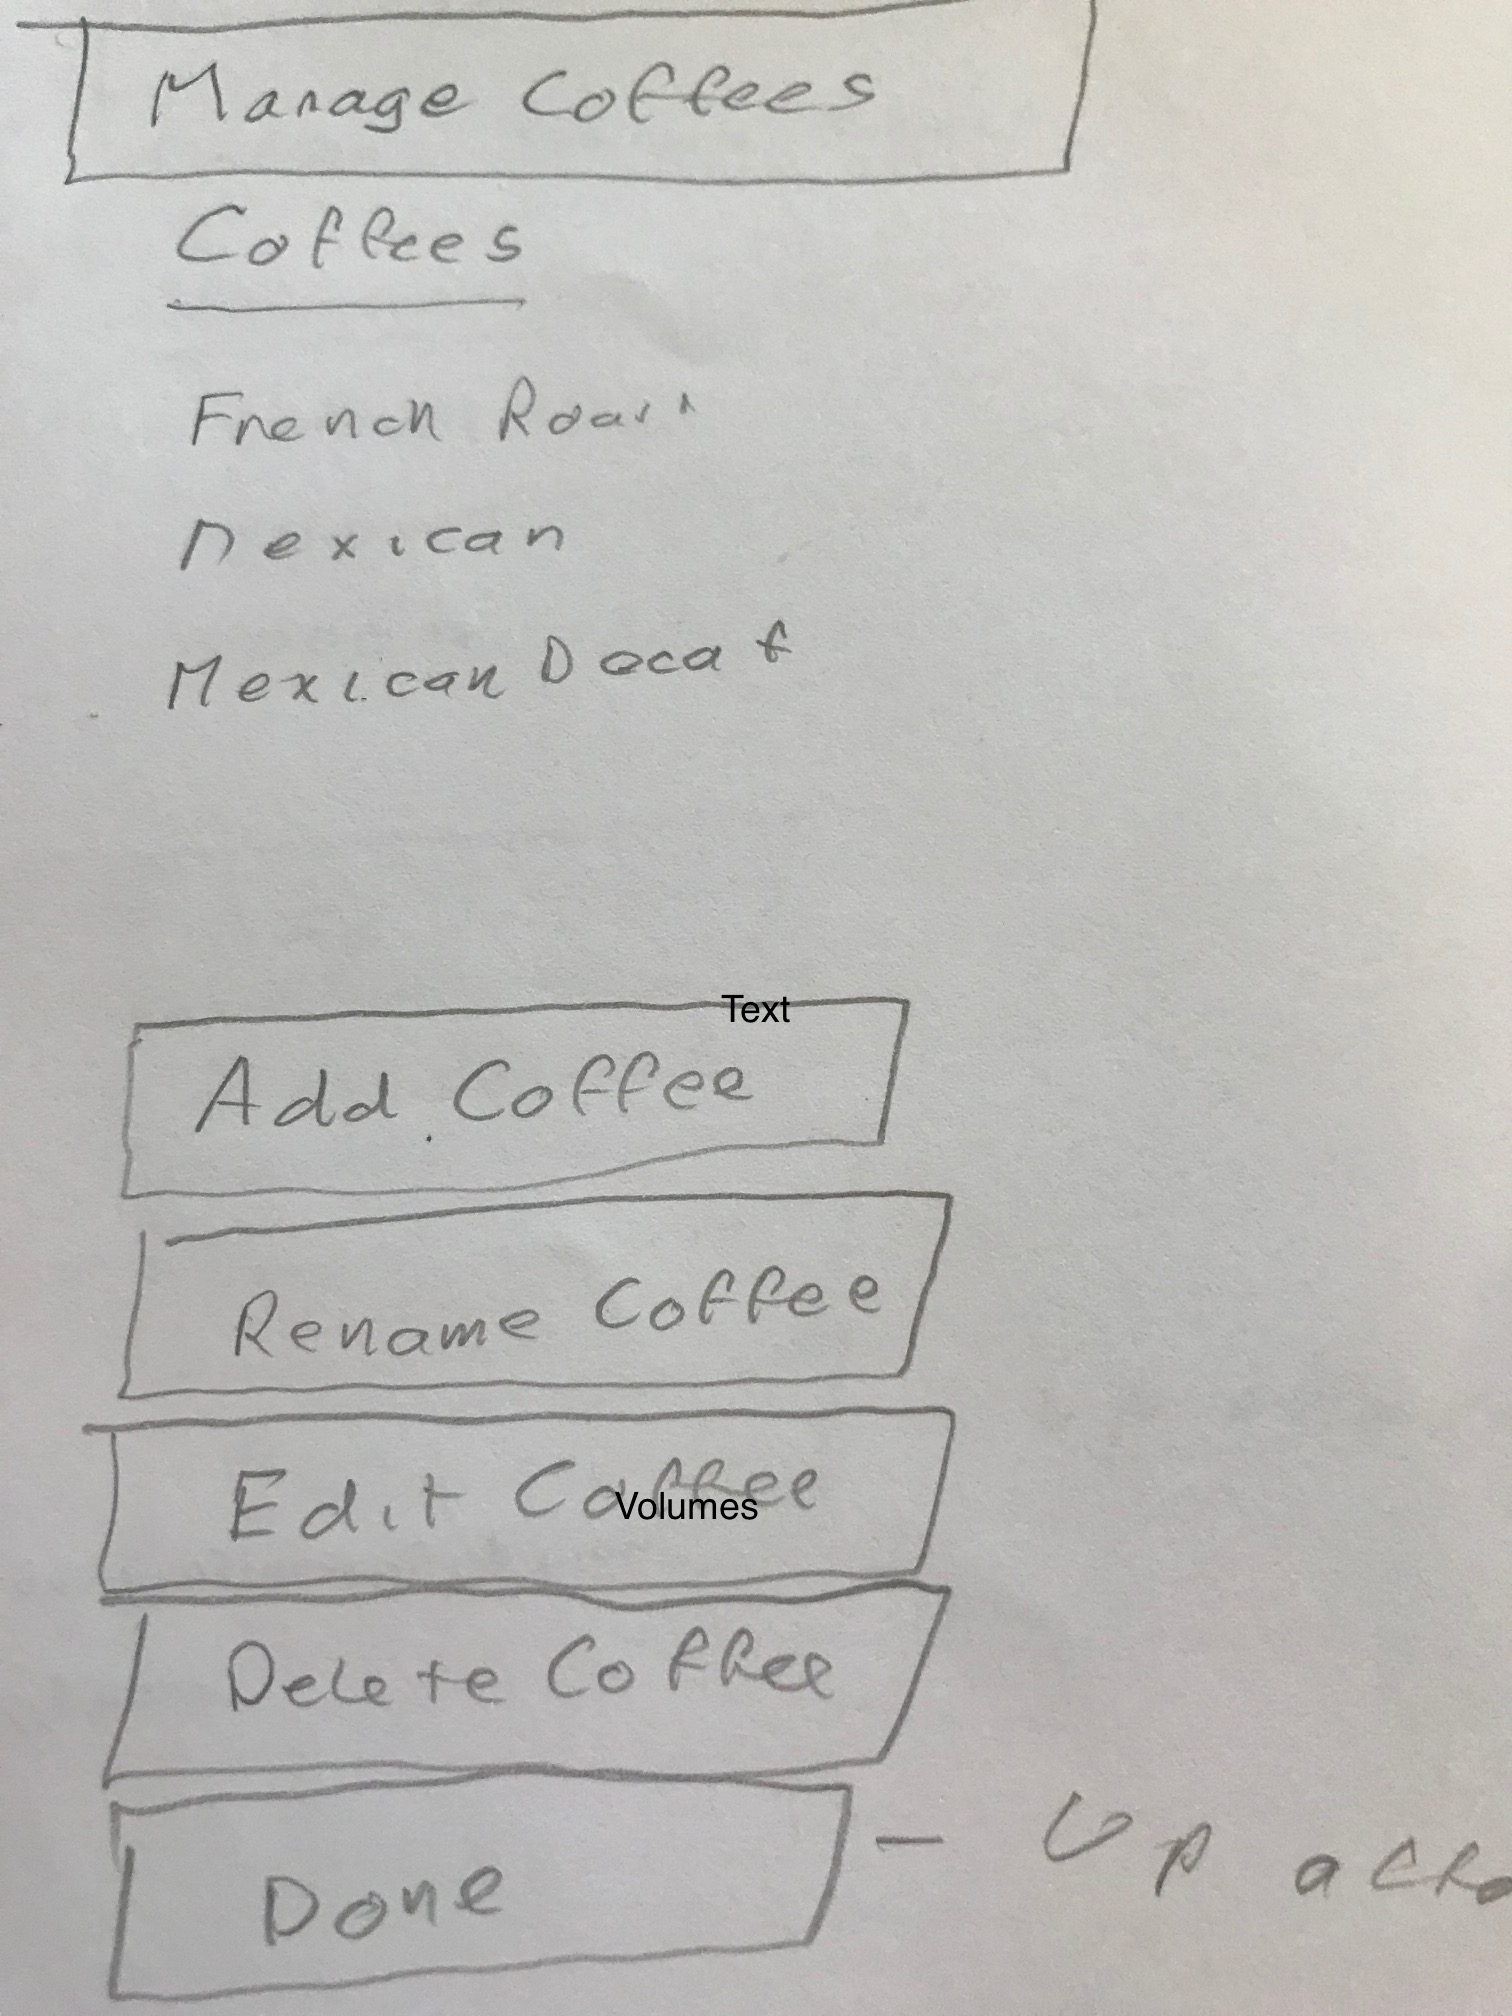 Manage Coffees
Coffees
French Roast
Mexican
Mexican Decaf
Text
Add Coffee
Rename Coffee
Edit Coffee
Volumes
Delete Coffee
Done - Up